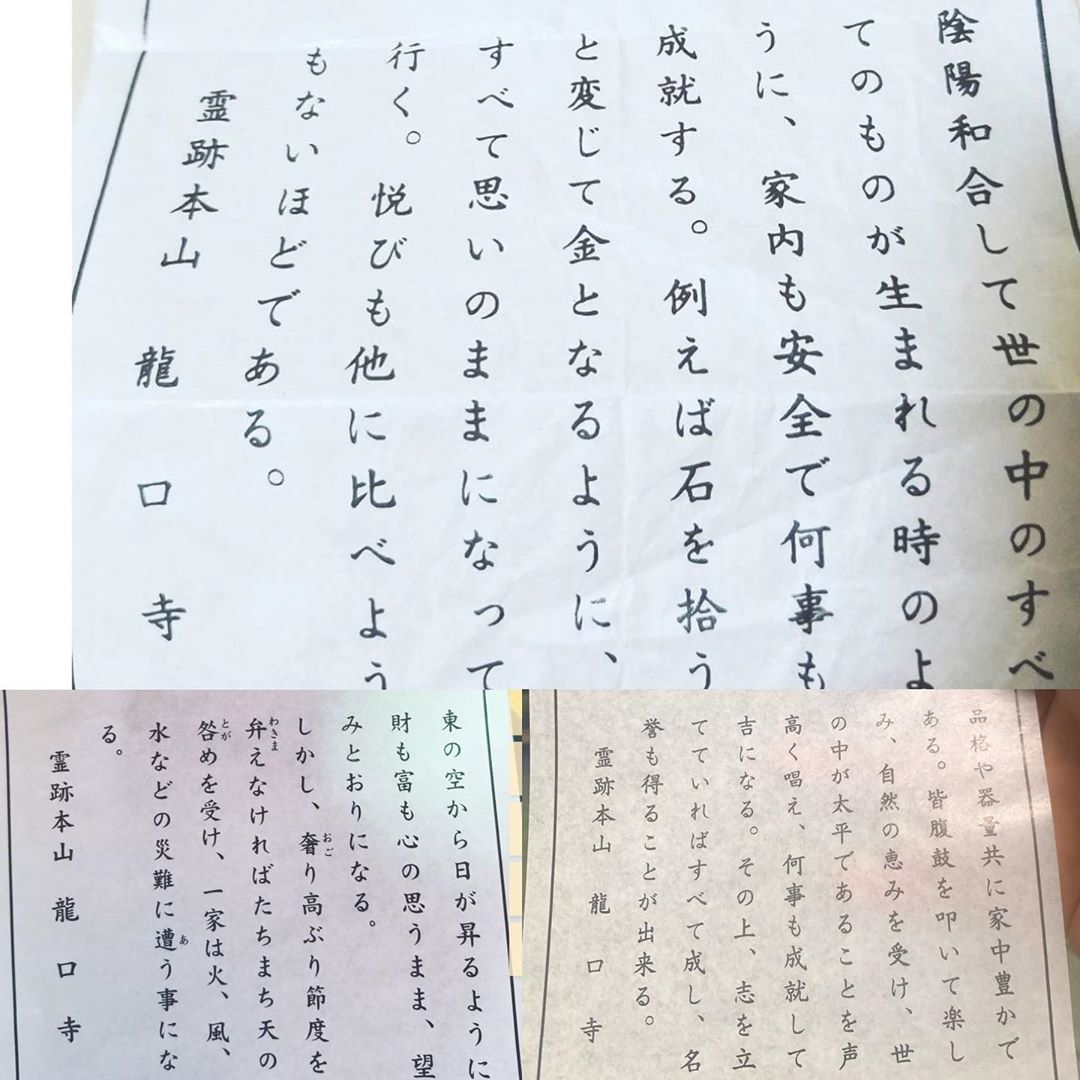 陰陽和合して世の中のすべ
てのものが生まれる時のよ
うに、家内も安全で何事も
成就する。例えば石を拾う
と変じて金となるように、
すべて思いのままになって
行く。悦びも他に比べよう
もないほどである。
霊跡本山 龍口寺
東の空から日が昇るように
財も富も心の思うまま、望
みとおりになる。
しかし、奢り高ぶり節度を
おご
弁えなければたちまち天の
わきま
咎めを受け、一家は火、風、
とが
水などの災難に遭う事にな
あ
る。
霊跡本山 龍口寺
品格や器量共に家中豊かで
ある。皆腹鼓を叩いて楽し
み、自然の恵みを受け、世
の中が太平であることを声
高く唱え、何事も成就して
吉になる。その上、志を立
てていればすべて成し、名
誉も得ることが出来る。
霊跡本山 龍口寺